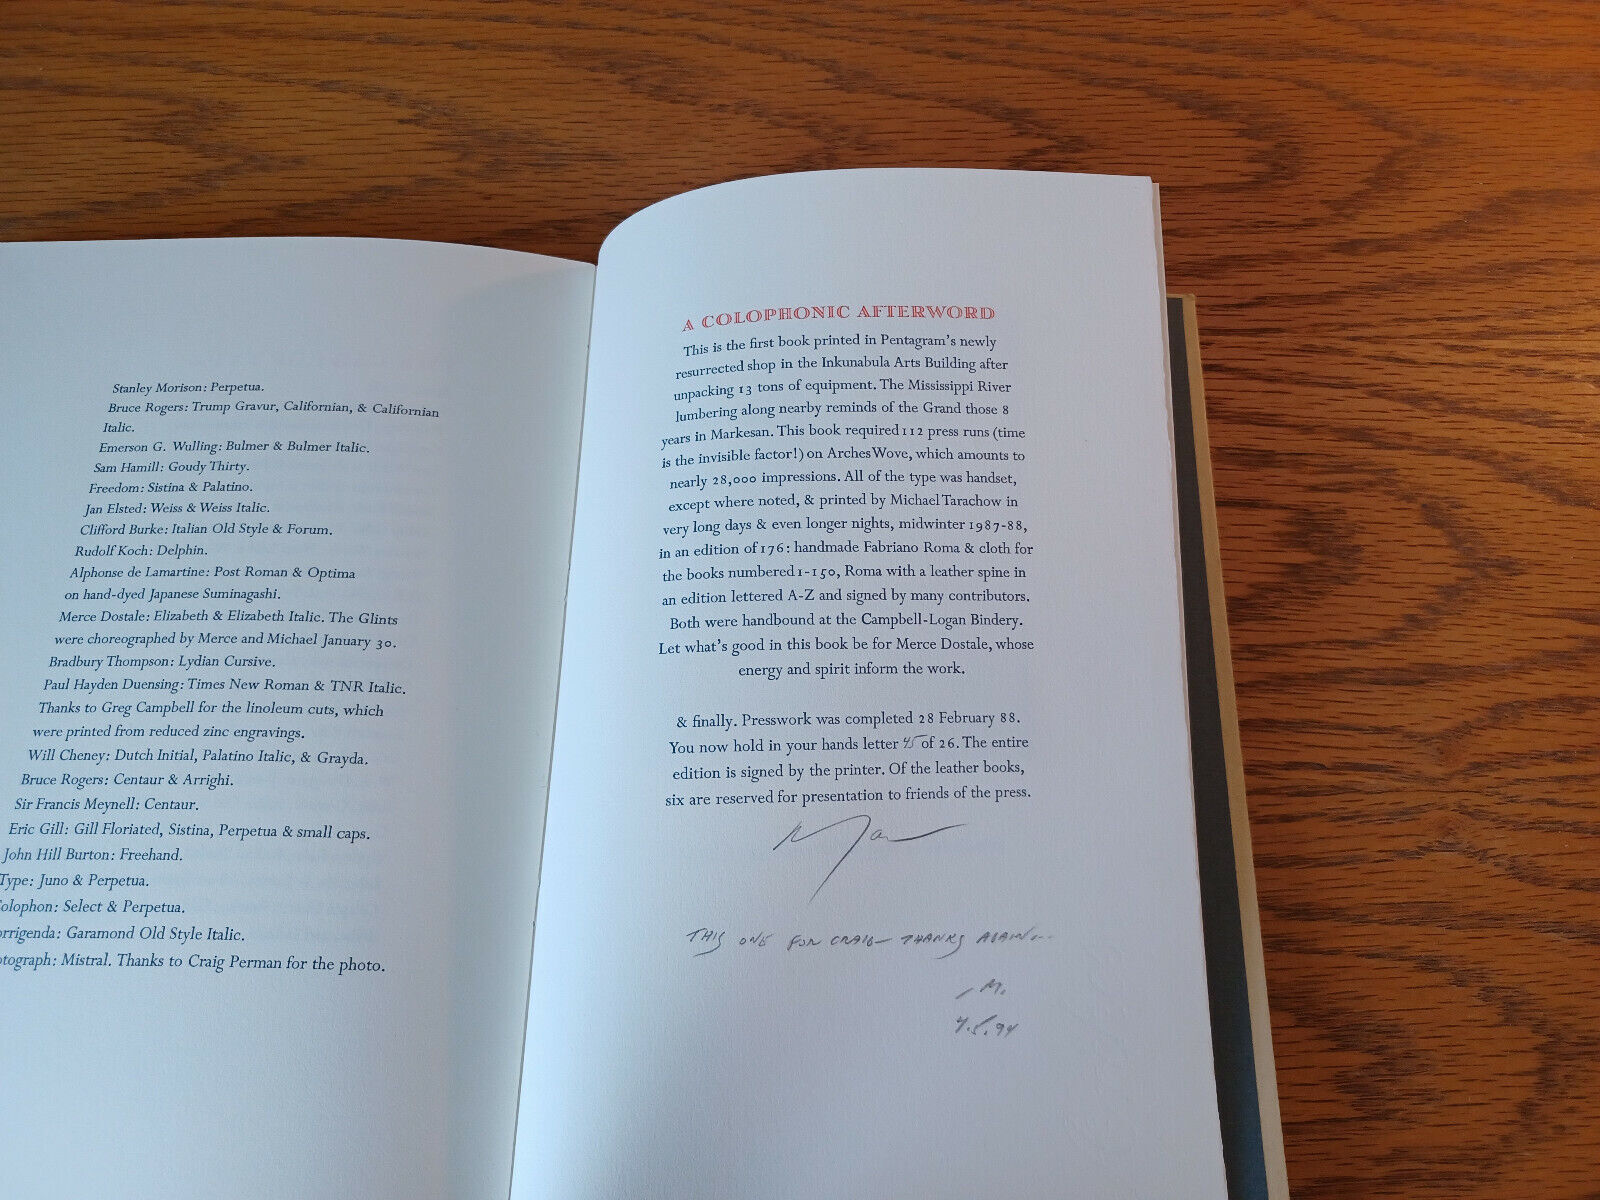 Stanley Morison: Perpetua.
Bruce Rogers: Trump Gravur, Californian, & Californian
Italic.
Emerson G. Wulling: Bulmer & Bulmer Italic.
Sam Hamill: Goudy Thirty.
Freedom: Sistina & Palatino.
Jan Elsted: Weiss & Weiss Italic.
Clifford Burke: Italian Old Style & Forum.
Rudolf Koch: Delphin.
Alphonse de Lamartine: Post Roman & Optima
on hand-dyed Japanese Suminagashi.
Merce Dostale: Elizabeth & Elizabeth Italic. The Glints
were choreographed by Merce and Michael January 30.
Bradbury Thompson: Lydian Cursive.
Paul Hayden Duensing: Times New Roman & TNR Italic.
Thanks to Greg Campbell for the linoleum cuts, which
were printed from reduced zinc engravings.
Will Cheney: Dutch Initial, Palatino Italic, & Grayda.
Bruce Rogers: Centaur & Arrighi.
Sir Francis Meynell: Centaur.
Eric Gill: Gill Floriated, Sistina, Perpetua & small caps.
John Hill Burton: Freehand.
Type: Juno & Perpetua.
olophon: Select & Perpetua.
orrigenda: Garamond Old Style Italic.
otograph: Mistral. Thanks to Craig Perman for the photo.
A COLOPHONIC AFTERWORD
This is the first book printed in Pentagram's newly
resurrected shop in the Inkunabula Arts Building after
unpacking 13 tons of equipment. The Mississippi River
lumbering along nearby reminds of the Grand those 8
years in Markesan. This book required 112 press runs (time
is the invisible factor!) on Arches Wove, which amounts to
nearly 28,000 impressions. All of the type was handset,
except where noted, & printed by Michael Tarachow in
very long days & even longer nights, midwinter 1987-88,
in an edition of 176: handmade Fabriano Roma & cloth for
the books numbered 1-150, Roma with a leather spine in
an edition lettered A-Z and signed by many contributors.
Both were handbound at the Campbell-Logan Bindery.
Let what's good in this book be for Merce Dostale, whose
energy and spirit inform the work.
& finally. Presswork was completed 28 February 88.
You now hold in your hands letter of 26. The entire
edition is signed by the printer. Of the leather books,
six are reserved for presentation to friends of the press.
THIS ONE FOR CRAIG— THANKS AGAIN...
- M.
4.5.94